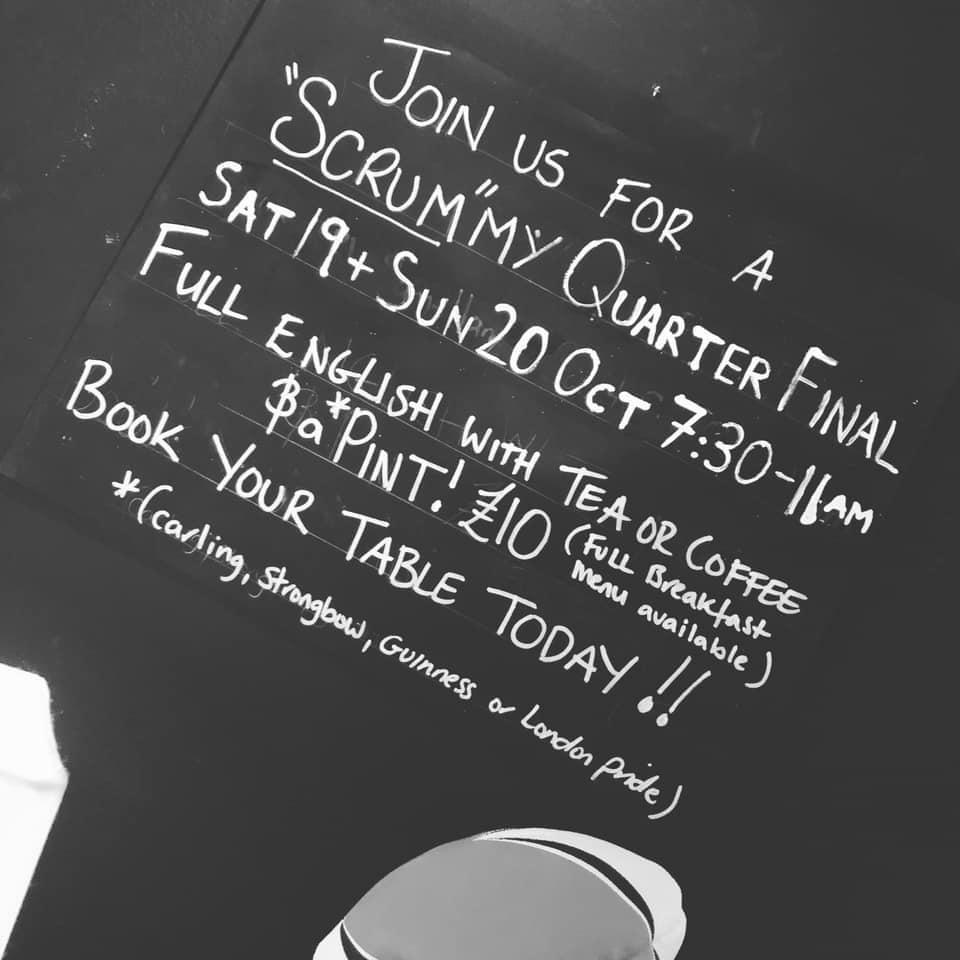 JOIN US FOR A
"SCRUM"MY QUARTER FINAL
SAT 19 + SUN 20 OCT 7:30-11AM
FULL ENGLISH WITH TEA OR COFFEE
& a *PINT! £10 (FULL Breakfast
menu available)
BOOK YOUR TABLE TODAY!!
*(carling, strongbow, Guinness or London pride)